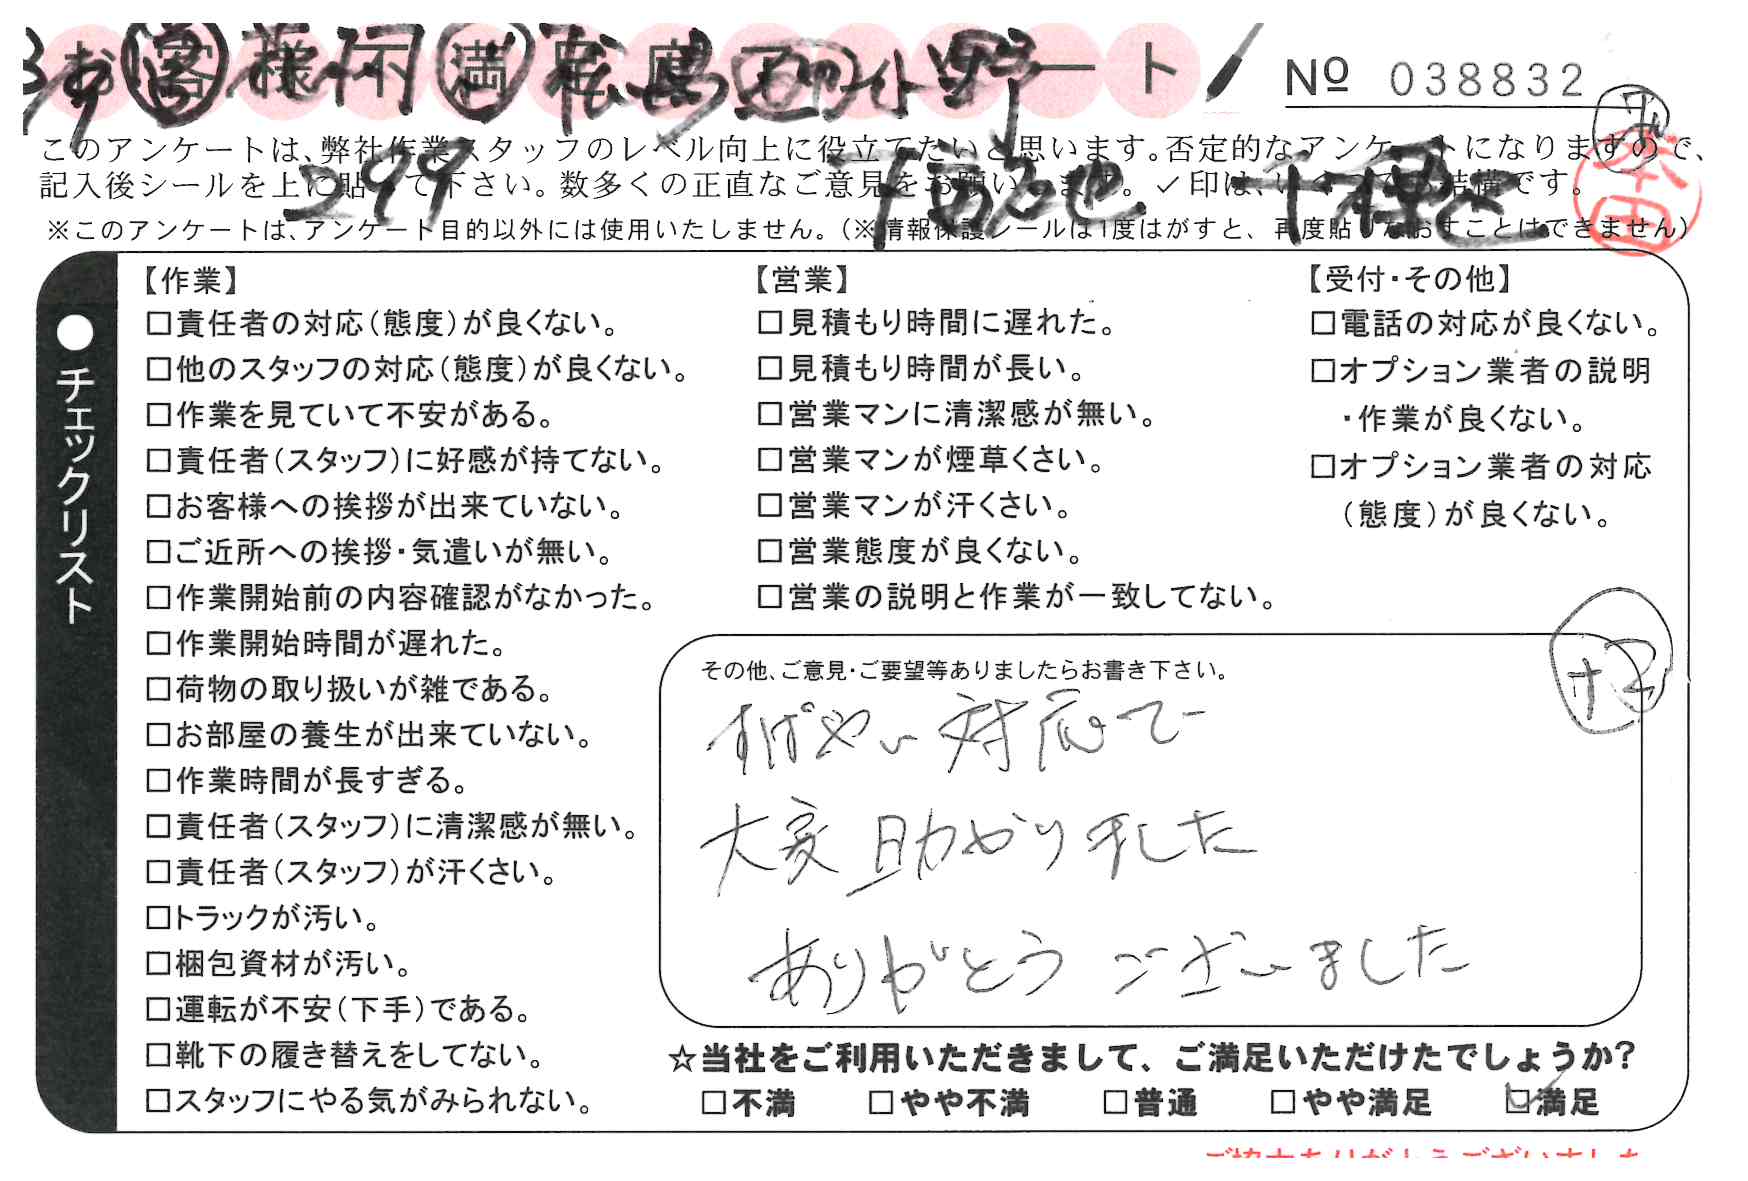 お客様不満足度アンケート
№ 038832
このアンケートは、弊社作業スタッフのレベル向上に役立てたいと思います。否定的なアンケートになりますので、
記入後シールを上に貼って下さい。数多くの正直なご意見をお願いします。✓印は、いくつでも結構です。
※このアンケートは、アンケート目的以外には使用いたしません。(※情報保護シールは1度はがすと、再度貼りなおすことはできません)
299
本田
●チェックリスト
【作業】
□責任者の対応(態度)が良くない。
□他のスタッフの対応(態度)が良くない。
□作業を見ていて不安がある。
□責任者(スタッフ)に好感が持てない。
□お客様への挨拶が出来ていない。
□ご近所への挨拶・気遣いが無い。
□作業開始前の内容確認がなかった。
□作業開始時間が遅れた。
□荷物の取り扱いが雑である。
□お部屋の養生が出来ていない。
□作業時間が長すぎる。
□責任者(スタッフ)に清潔感が無い。
□責任者(スタッフ)が汗くさい。
□トラックが汚い。
□梱包資材が汚い。
□運転が不安(下手)である。
□靴下の履き替えをしてない。
□スタッフにやる気がみられない。
【営業】
□見積もり時間に遅れた。
□見積もり時間が長い。
□営業マンに清潔感が無い。
□営業マンが煙草くさい。
□営業マンが汗くさい。
□営業態度が良くない。
□営業の説明と作業が一致してない。
【受付・その他】
□電話の対応が良くない。
□オプション業者の説明
・作業が良くない。
□オプション業者の対応
(態度)が良くない。
+2
その他、ご意見・ご要望等ありましたらお書き下さい。
すばやい対応で
大変助かりました
ありがとうございました
☆当社をご利用いただきまして、ご満足いただけたでしょうか?
□不満 □やや不満 □普通 □やや満足 ☑満足
ご協力ありがとうございました